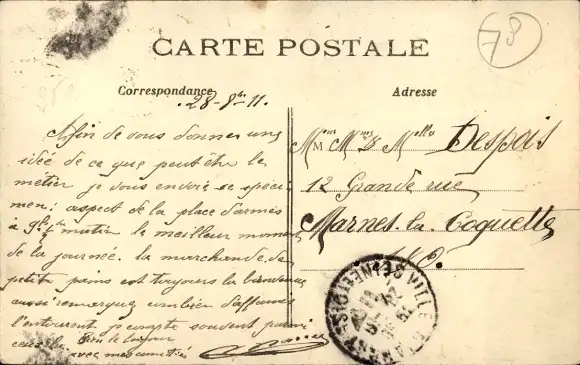 78
CARTE POSTALE
Correspondance
Adresse
28-8bre-11.
Afin de vous donner une
idée de ce que peut être le
métier je vous envoie ce spéci-
men: aspect de la place d'armes
à 9h 1/2 matin le meilleur moment
de la journée. la marchande de
petits pains est toujours la bienvenue
aussi remarquez combien d'affamés
l'entourent je compte souvent parmi
Bien le bonjour
avec mes amitiés
Mr Mme & Melle Despois
12 Grande rue
Marnes-la-Coquette
S.&O.
VERSAILLES
SEINE-ET-OISE